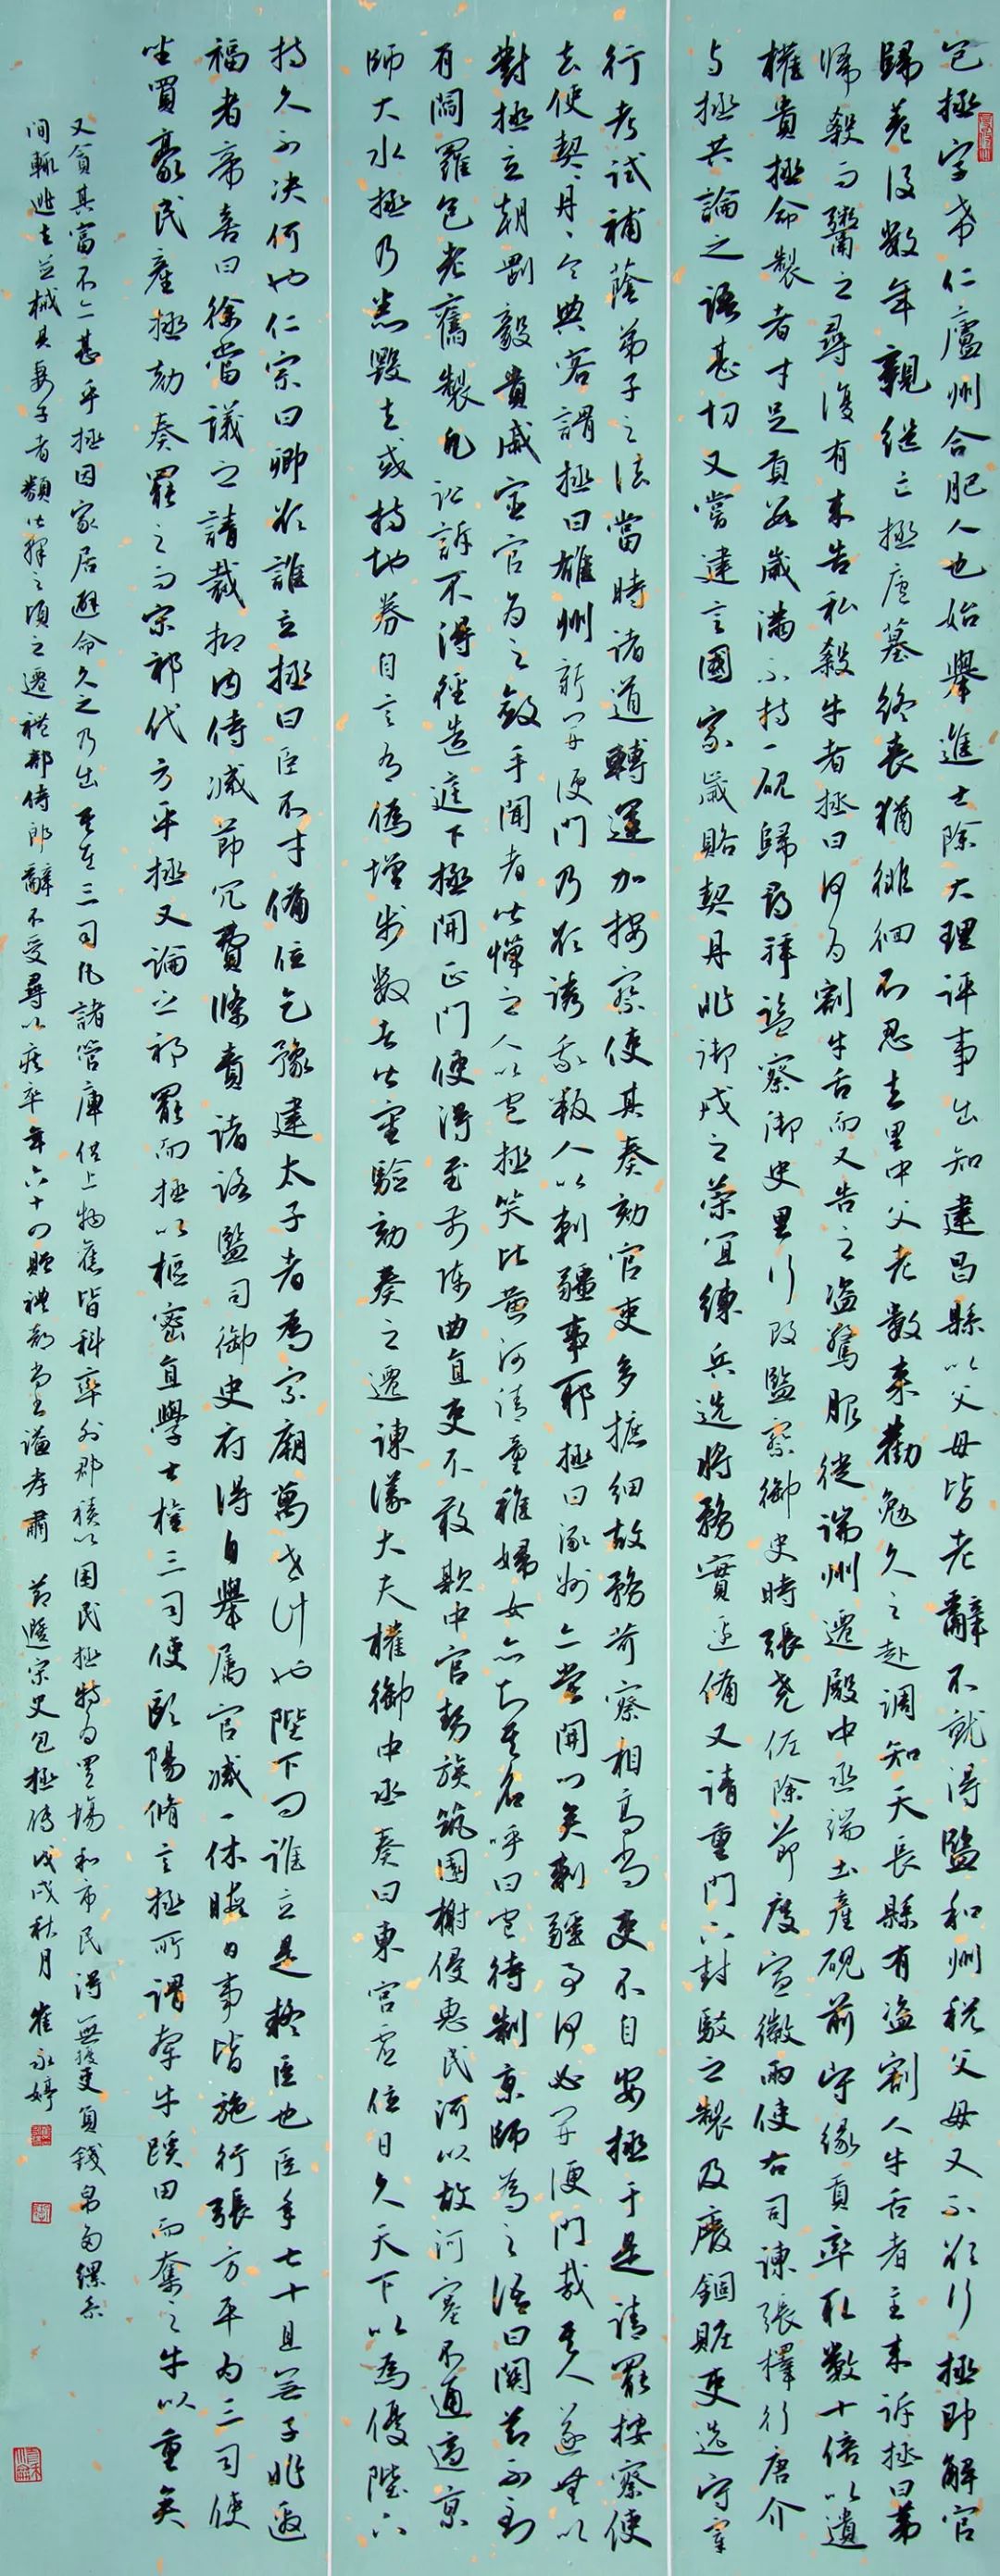 包拯字希仁廬州合肥人也始舉進士除大理評事出知建昌縣以父母皆老辭不就得監和州稅父母又不欲行拯即解官
歸養後數年親繼亡拯廬墓終喪猶徘徊不忍去里中父老數來勸勉久之赴調知天長縣有盜割人牛舌者主來訴拯曰第
歸殺而鬻之尋復有來告私殺牛者拯曰何為割牛舌而又告之盜驚服徙端州遷殿中丞端土產硯前守緣貢率取數十倍以遺
權貴拯命製者才足貢數歲滿不持一硯歸尋拜監察御史里行改監察御史時張堯佐除節度宣徽兩使右司諫張擇行唐介
與拯共論之語甚切又嘗建言國家歲賂契丹非御戎之策宜練兵選將務實邊備又請重門下封駁之製及廢錮贓吏選守宰
行考試補蔭弟子之法當時諸道轉運加按察使其奏劾官吏多摭細故務苛察相高尚吏不自安拯于是請罷按察使
去使契丹丹令典客謂拯曰雄州新開便門乃欲誘我叛人以刺疆事耶拯曰涿州亦嘗開門矣刺疆事何必開便門哉其人遂無以
對拯立朝剛毅貴戚宦官為之斂手聞者皆憚之人以包拯笑比黃河清童稚婦女亦知其名呼曰包待制京師為之語曰關節不到
有閻羅包老舊製凡訟訴不得徑造庭下拯開正門使得至前陳曲直吏不敢欺中官勢族筑園榭侵惠民河以故河塞不通適京
師大水拯乃悉毀去或持地券自言有偽增步數者皆審驗劾奏之遷諫議大夫權御中丞奏曰東宮虛位日久天下以為憂陛下
持久不決何也仁宗曰卿欲誰立拯曰臣不才備位乞豫建太子者為宗廟萬世計也陛下問誰立是疑臣也臣年七十且無子非邀
福者帝喜曰徐當議之請裁抑內侍減節冗費條責諸路監司御史府得自舉屬官減一休暇日事皆施行張方平為三司使
坐買豪民產拯劾奏罷之而宋祁代方平拯又論之祁罷而拯以樞密直學士權三司使歐陽脩言拯所謂牽牛蹊田而奪之牛以重矣
又貪其富不亦甚乎拯因家居避命久之乃出其在三司凡諸管庫供上物舊皆科率外郡積以困民拯特為置場和市民得無擾吏負錢帛多縲系
間輒逃去並械其妻子者類皆釋之頃之遷禮部侍郎辭不受尋以疾卒年六十四贈禮部尚書謚孝肅 節選宋史包拯傳戊戌秋月 崔永婷